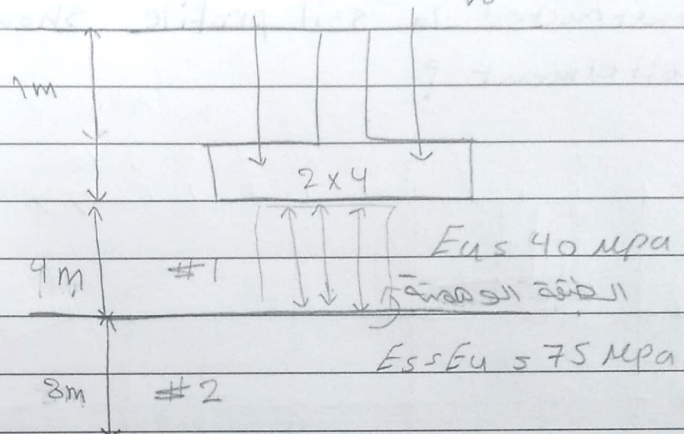 1m
2x4
Eu = 40 MPa
4m #1
الطبقة الوهمية
Es = Eu = 75 MPa
8m #2